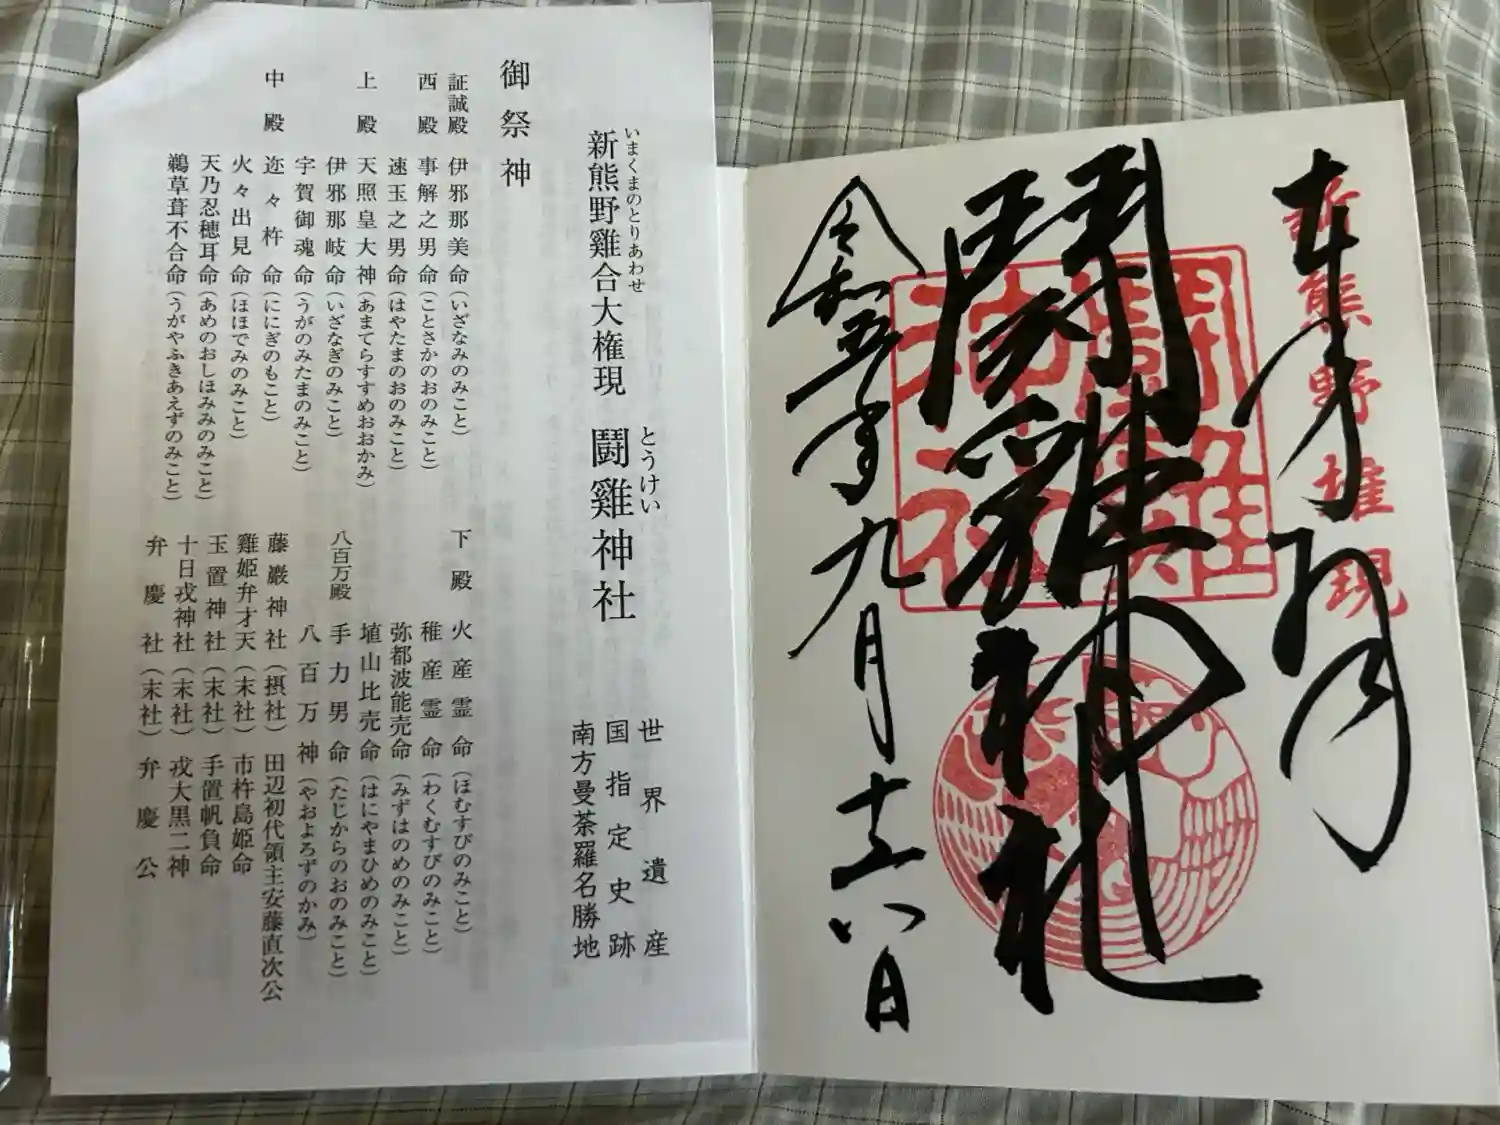 奉拝
新熊野権現
闘雞神社
令和五年九月十八日
新熊野雞合大権現 闘雞神社
いまくまのとりあわせ とうけい
世界遺産
国指定史跡
南方曼荼羅名勝地
御祭神
証誠殿 伊邪那美命(いざなみのみこと)
西殿 事解之男命(ことさかのおのみこと)
速玉之男命(はやたまのおのみこと)
上殿 天照皇大神(あまてらすすめおおかみ)
伊邪那岐命(いざなぎのみこと)
宇賀御魂命(うがのみたまのみこと)
中殿 迩々杵命(ににぎのもこと)
火々出見命(ほほでみのみこと)
天乃忍穂耳命(あめのおしほみみのみこと)
鵜草葺不合命(うがやふきあえずのみこと)
下殿 火産霊命(ほむすびのみこと)
稚産霊命(わくむすびのみこと)
弥都波能売命(みずはのめのみこと)
埴山比売命(はにやまひめのみこと)
八百万殿 手力男命(たじからのおのみこと)
八百万神(やおよろずのかみ)
藤巖神社(摂社) 田辺初代領主安藤直次公
雞姫弁才天(末社) 市杵島姫命
玉置神社(末社) 手置帆負命
十日戎神社(末社) 戎大黒二神
弁慶社(末社) 弁慶公